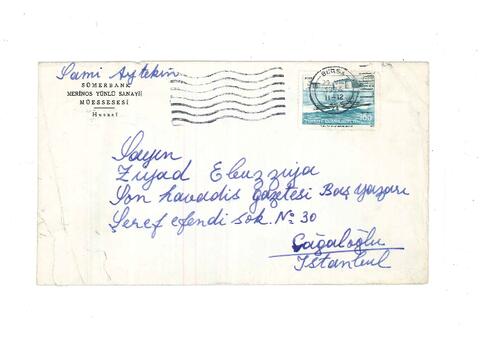 Sami Aytekin
SÜMERBANK
MERİNOS YÜNLÜ SANAYİİ
MÜESSESESİ
Hususî
BURSA
11-12
TÜRKİYE CUMHURİYETİ
100
Sayın
Ziyad Ebuzziya
Son havadis gazetesi Baş yazarı
Şeref efendi sok. No 30
Cağaloğlu
İstanbul